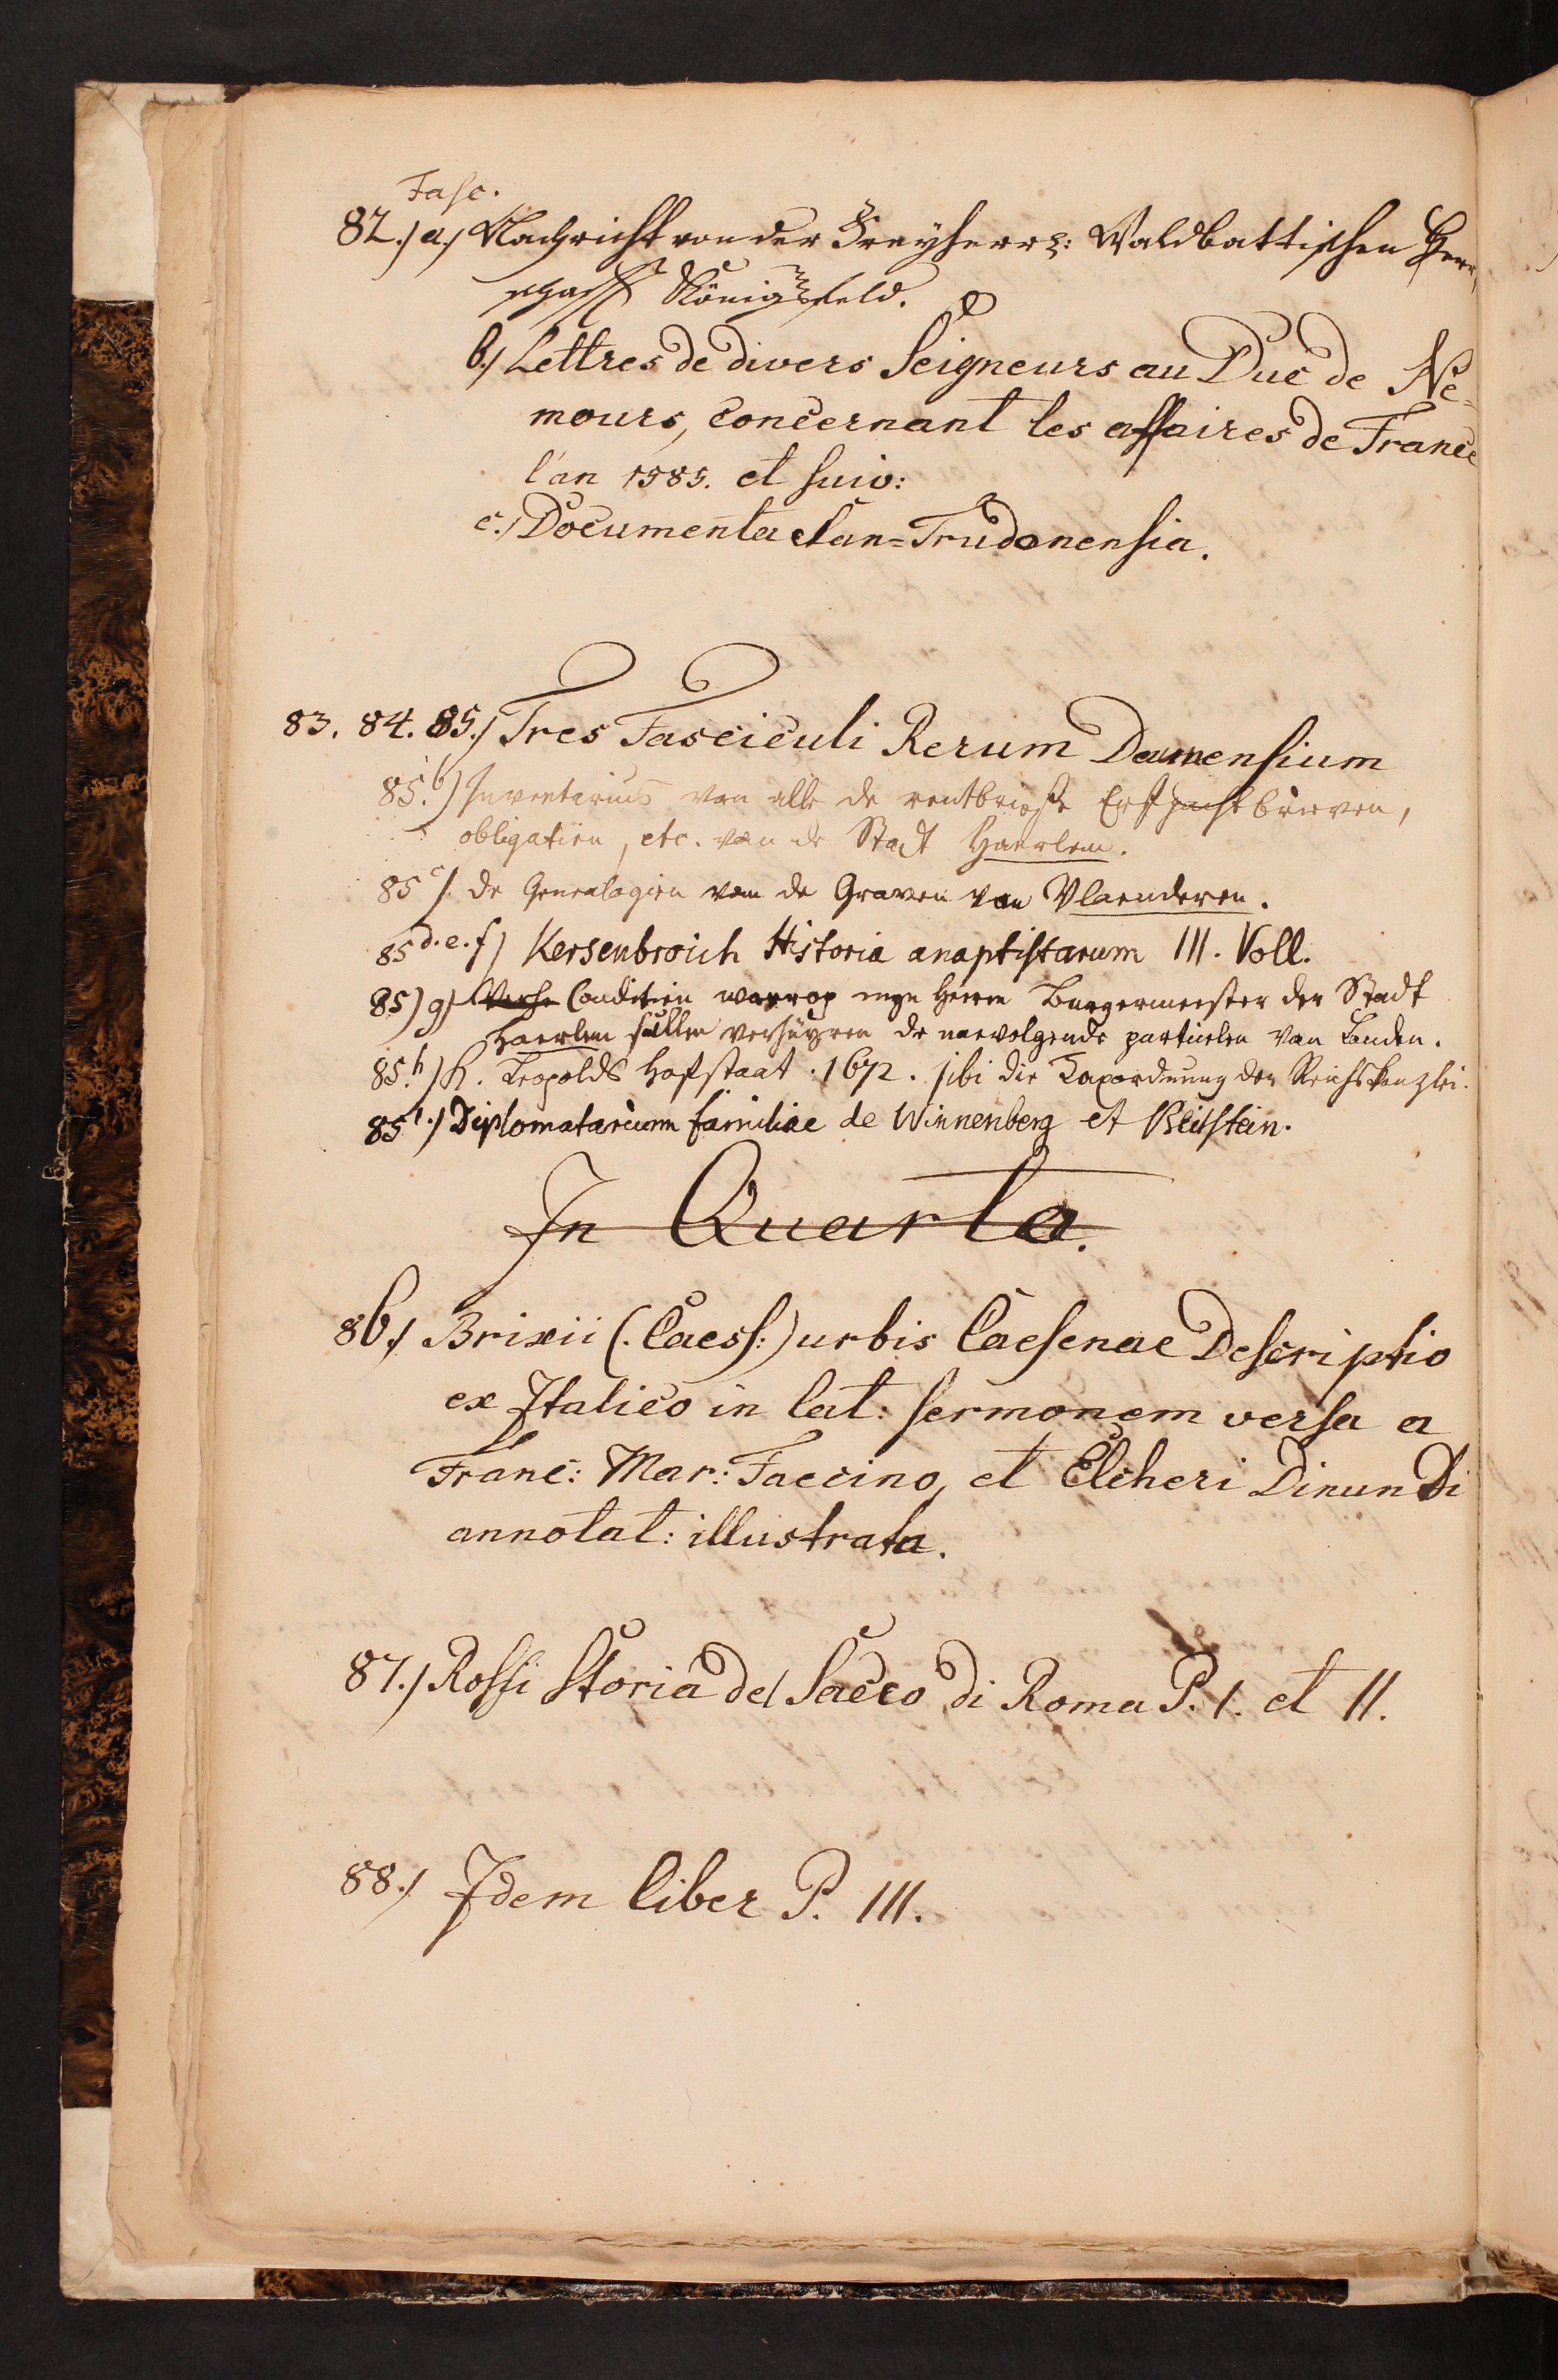 Fasc.
82.) a.) Nachricht von der Freyherrl: Waldbattischen Herr,
schafft Königsfeld.
b.) Lettres de divers Seigneurs au Duc de Ne=
mours, concernant les affaires de France
l'an 1585. et suiv:
c.) Documenta San=Trudonensia.
83. 84. 85.) Tres Fasciculi Rerum Damensium
85.b) Inventarius van alle de rentbrieffe Erfpachtbrieven,
obligatien, etc. van de Stadt Haerlem.
85 c). De Genealogien van de Graven van Vlaenderen.
85 d. e. f) Kersenbroich Historia anaptistarum III. Voll.
85) g) Conditien warrop myn Heeren Burgermeester der Stadt
Haerlem sullen verhuyren de naevolgende partielen van Landen.
85.h) K. Leopolds Hofstaat. 1672. sibi die Taxordnung der Reichskanzlei.
85 i.) Diplomatarium familiae de Winnenberg et Beilstein.
In Quarto.
86.) Brixii (. Caess:) urbis Caesenae Descriptio
ex Italico in lat: sermonem versa a
Franc: Mar: Faccino, et Elcheri Dinundi
annotat: illustrata.
87.) Rossi Storia del Sacco di Roma P. I. et II.
88.) Idem liber P. III.